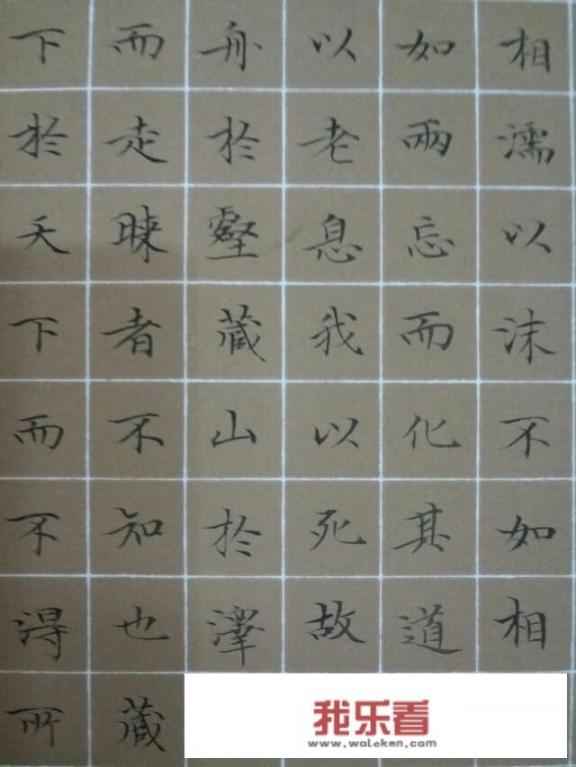 相濡以沫不如相
如兩忘而化其道
以老息我以死故
舟於壑藏山於澤
而走昧者不知也藏
下於天下而不得所
我乐看
www.woleken.com